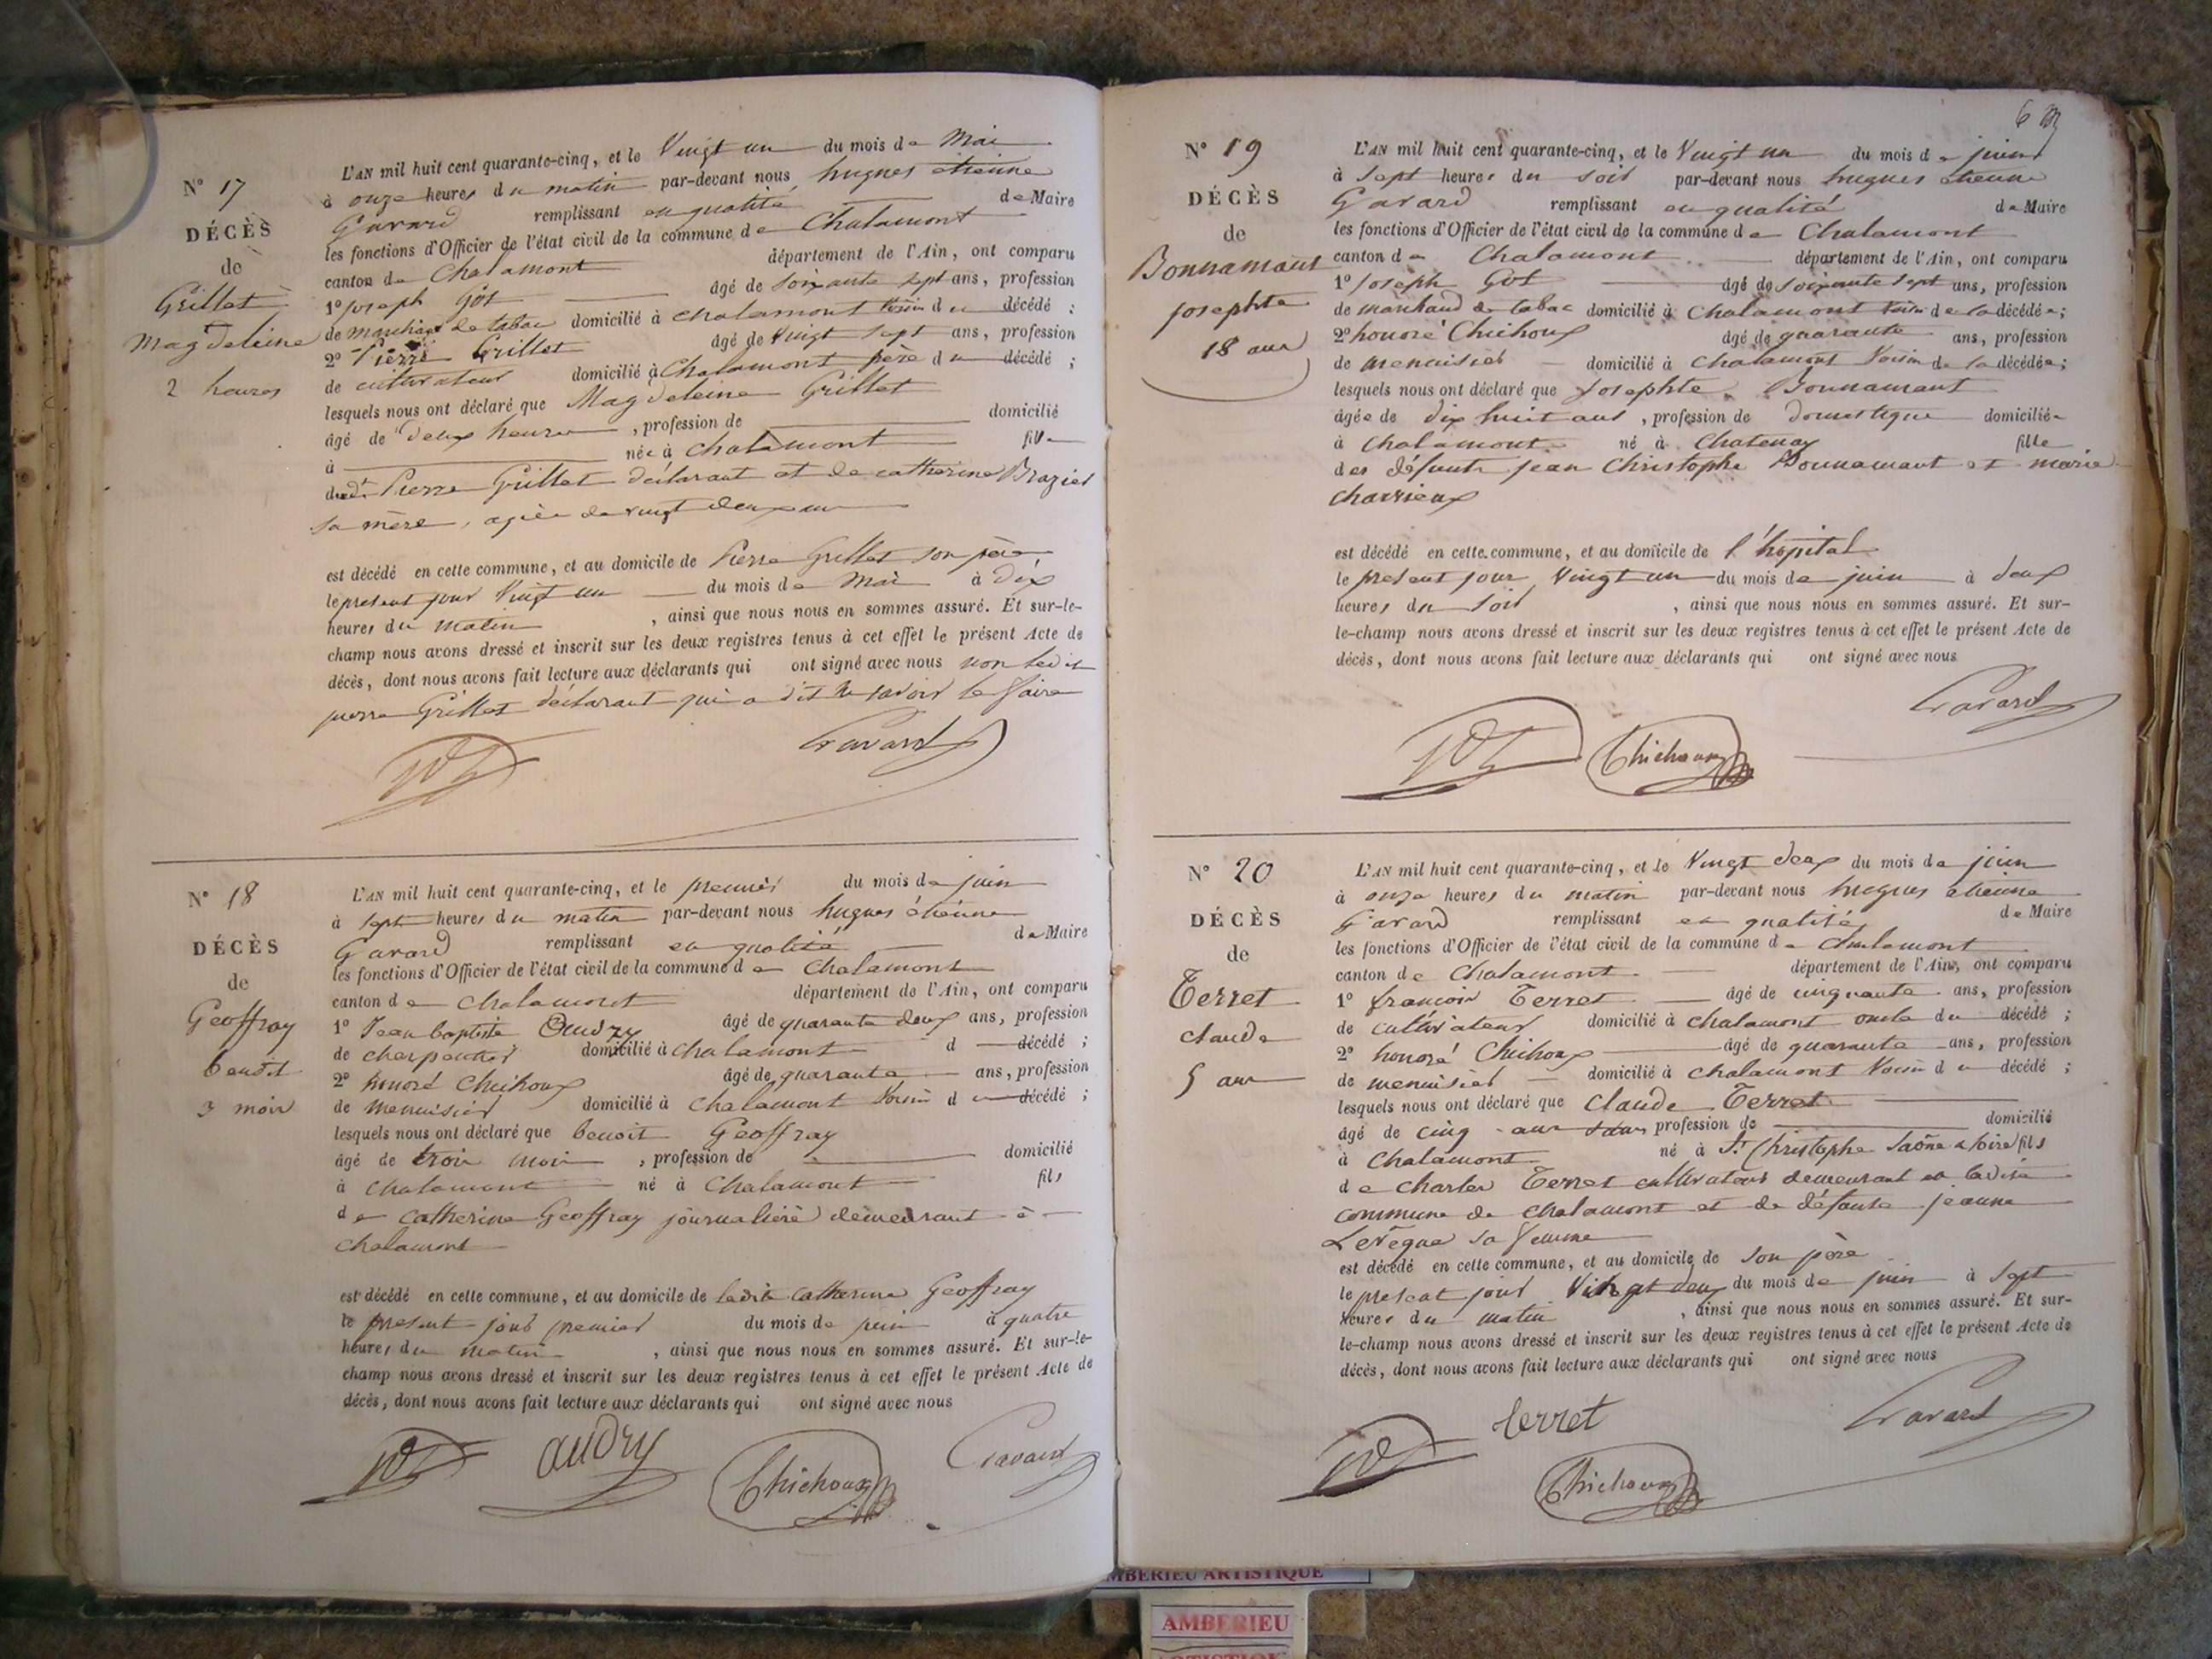 N° 17
DÉCÈS
de
Grillet
Magdeleine
2 heures
L'AN mil huit cent quarante-cinq, et le Vingt un du mois de Mai
à onze heures du matin par-devant nous hugues étienne
Gavard remplissant en qualité de Maire
les fonctions d'Officier de l'état civil de la commune de Chalamont
canton de Chalamont département de l'Ain, ont comparu
1° joseph Got âgé de soixante sept ans, profession
de marchand de tabac domicilié à chalamont voisin du décédé ;
2° Pierre Grillet âgé de vingt sept ans, profession
de cultivateur domicilié à Chalamont père du décédé ;
lesquels nous ont déclaré que Magdeleine Grillet
âgé de deux heures , profession de domicilié
à née à chalamont fille
dudt Pierre Grillet déclarant et de catherine Brazier
sa mère, agée de vingt deux ans
est décédé en cette commune, et au domicile de Pierre Grillet son père
le présent jour Vingt un du mois de Mai à dix
heures du matin , ainsi que nous nous en sommes assuré. Et sur-le-
champ nous avons dressé et inscrit sur les deux registres tenus à cet effet le présent Acte de
décès, dont nous avons fait lecture aux déclarants qui ont signé avec nous non ledit
pierre Grillet déclarant qui a dit ne savoir le faire
Gavard
N° 18
DÉCÈS
de
Geoffray
benoit
3 mois
L'AN mil huit cent quarante-cinq, et le premier du mois de juin
à sept heures du matin par-devant nous hugues étienne
Gavard remplissant en qualité de Maire
les fonctions d'Officier de l'état civil de la commune de Chalamont
canton de chalamont département de l'Ain, ont comparu
1° Jean baptiste Oudry âgé de quarante deux ans, profession
de charpentier domicilié à chalamont d décédé ;
2° honoré Chichoux âgé de quarante ans, profession
de menuisier domicilié à chalamont voisin du décédé ;
lesquels nous ont déclaré que benoit Geoffray
âgé de trois mois , profession de domicilié
à chalamont né à Chalamont fils
de catherine Geoffray journalière demeurant à
chalamont
est décédé en cette commune, et au domicile de ladite catherine Geoffray
le présent jour premier du mois de juin à quatre
heures du matin , ainsi que nous nous en sommes assuré. Et sur-le-
champ nous avons dressé et inscrit sur les deux registres tenus à cet effet le présent Acte de
décès, dont nous avons fait lecture aux déclarants qui ont signé avec nous
audry Chichoux Gavard
N° 19
DÉCÈS
de
Bonnamant
josephte
18 ans
L'AN mil huit cent quarante-cinq, et le Vingt un du mois de juin
à sept heures du soir par-devant nous hugues étienne
Gavard remplissant en qualité de Maire
les fonctions d'Officier de l'état civil de la commune de Chalamont
canton de Chalamont département de l'Ain, ont comparu
1° joseph Got âgé de soixante sept ans, profession
de marchand de tabac domicilié à Chalamont voisin de la décédée ;
2° honoré Chichoux âgé de quarante ans, profession
de menuisier domicilié à chalamont voisin de la décédée ;
lesquels nous ont déclaré que josephte Bonnamant
âgée de dix huit ans , profession de domestique domiciliée
à chalamont né à Chatenay fille
des défunts jean Christophe Bonnamant et marie
charrieux
est décédé en cette commune, et au domicile de l'hôpital
le présent jour Vingt un du mois de juin à deux
heures du soir , ainsi que nous nous en sommes assuré. Et sur-
le-champ nous avons dressé et inscrit sur les deux registres tenus à cet effet le présent Acte de
décès, dont nous avons fait lecture aux déclarants qui ont signé avec nous
Gavard
Chichoux
N° 20
DÉCÈS
de
Terret
claude
5 ans
L'AN mil huit cent quarante-cinq, et le Vingt deux du mois de juin
à onze heures du matin par-devant nous hugues étienne
Gavard remplissant en qualité de Maire
les fonctions d'Officier de l'état civil de la commune de chalamont
canton de Chalamont département de l'Ain, ont comparu
1° françois Terret âgé de cinquante ans, profession
de cultivateur domicilié à chalamont oncle du décédé ;
2° honoré Chichoux âgé de quarante ans, profession
de menuisier domicilié à chalamont voisin du décédé ;
lesquels nous ont déclaré que claude Terret
âgé de cinq ans profession de domicilié
à Chalamont né à St Christophe Saône & loire fils
de charles Terret cultivateur demeurant en ladite
commune de chalamont et de défunte jeanne
Levêque sa femme
est décédé en cette commune, et au domicile de son père
le présent jour Vingt deux du mois de juin à sept
heures du matin , ainsi que nous nous en sommes assuré. Et sur-
le-champ nous avons dressé et inscrit sur les deux registres tenus à cet effet le présent Acte de
décès, dont nous avons fait lecture aux déclarants qui ont signé avec nous
terret Gavard
Chichoux
AMBERIEU ARTISTIQUE
AMBERIEU
ARTISTIQUE